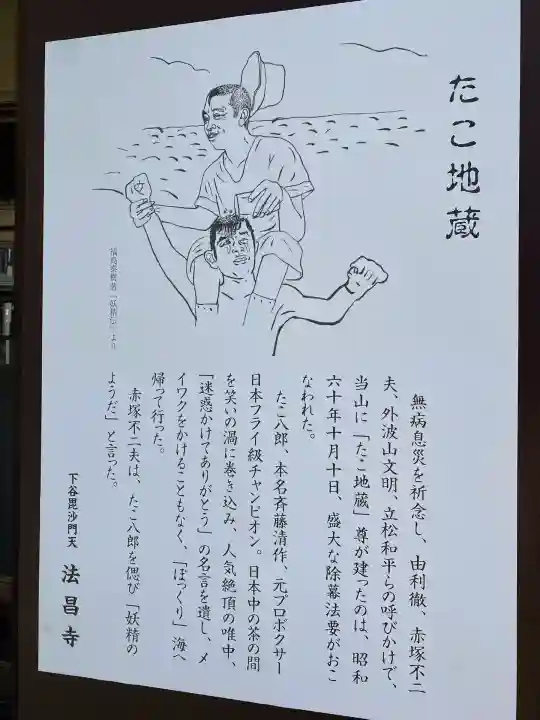 たこ地蔵
福島泰樹著「妖精伝」より
無病息災を祈念し、由利徹、赤塚不二
夫、外波山文明、立松和平らの呼びかけで、
当山に「たこ地蔵」尊が建ったのは、昭和
六十年十月十日、盛大な除幕法要がおこ
なわれた。
たこ八郎、本名斉藤清作、元プロボクサー
日本フライ級チャンピオン。日本中の茶の間
を笑いの渦に巻き込み、人気絶頂の唯中、
「迷惑かけてありがとう」の名言を遺し、メ
イワクをかけることもなく、「ぽっくり」海へ
帰って行った。
赤塚不二夫は、たこ八郎を偲び「妖精の
ようだ」と言った。
下谷毘沙門天 法昌寺